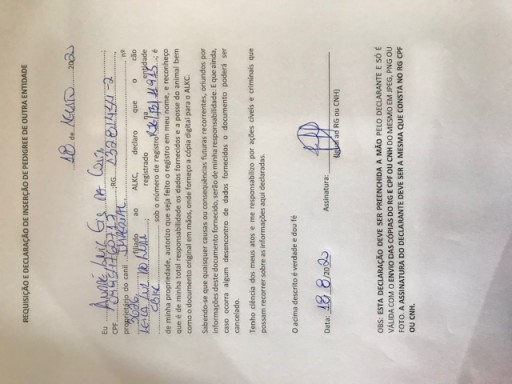 REQUISIÇÃO E DECLARAÇÃO DE INSERÇÃO DE PEDIGREE DE OUTRA ENTIDADE
18 de Agosto 2020
Eu
CPF RG
proprietário do canil nº
filiado ao ALKC, declaro que o cão
registrado na entidade
sob o número de registro é
de minha propriedade, autorizo que seja feito o registro em meu nome, e reconheço
que é de minha total responsabilidade os dados fornecidos e a posse do animal bem
como o documento original em mãos, onde forneço a cópia digital para o ALKC.
Sabendo-se que quaisquer causas ou consequências futuras recorrentes, oriundos por
informações deste documento fornecido, serão de minha responsabilidade. E que ainda,
caso ocorra algum desencontro de dados fornecidos o documento poderá ser
cancelado.
Tenho ciência dos meus atos e me responsabilizo por ações cíveis e criminais que
possam recorrer sobre as informações aqui declaradas.
O acima descrito é verdade e dou fé
Data: 18/8/2020 Assinatura:
(Igual ao RG ou CNH)
OBS: ESTA DECLARAÇÃO DEVE SER PREENCHIDA A MÃO PELO DECLARANTE E SÓ É
VÁLIDA COM O ENVIO DAS CÓPIAS DO RG E CPF OU CNH DO MESMO EM JPEG, PNG OU
FOTO. A ASSINATURA DO DECLARANTE DEVE SER A MESMA QUE CONSTA NO RG CPF
OU CNH.